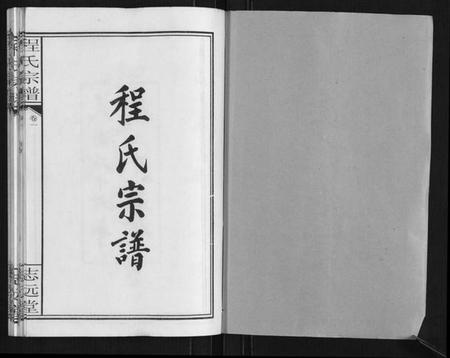 程氏宗譜
程氏宗譜
卷一
志远堂